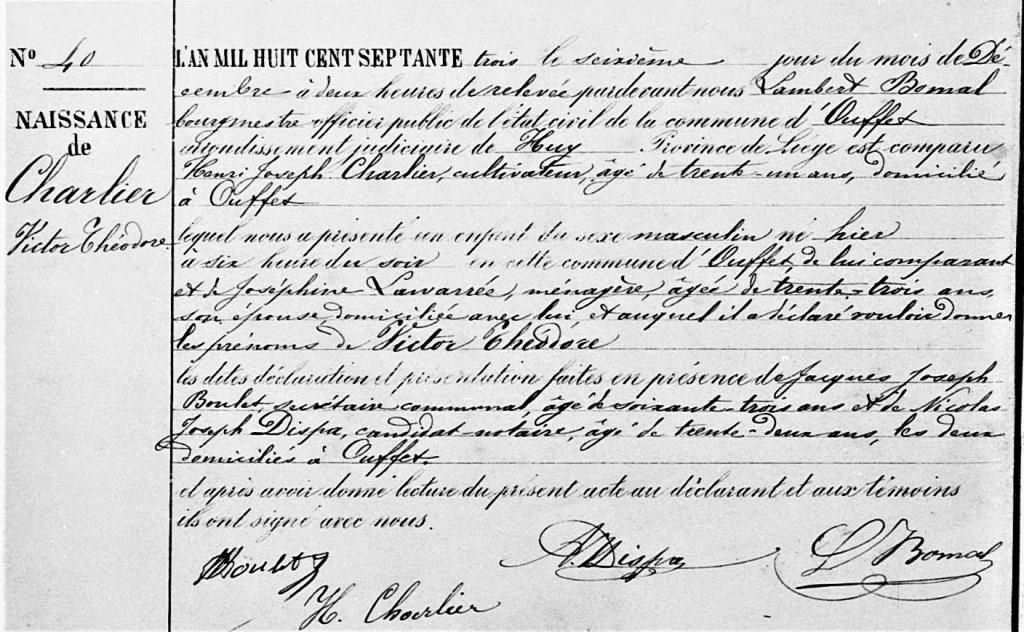 N° 40
NAISSANCE
de
Charlier
Victor Théodore
L'AN MIL HUIT CENT SEPTANTE trois le seizième jour du mois de Dé-
cembre à deux heures de relevée pardevant nous Lambert Bomal
bourgmestre officier public de l'état civil de la commune d'Ouffet
arrondissement judiciaire de Huy Province de Liége est comparu
Henri Joseph Charlier, cultivateur, âgé de trente-un ans, domicilié
à Ouffet
lequel nous a présenté un enfant du sexe masculin né hier
à six heure du soir en cette commune d'Ouffet, de lui comparant
et de Joséphine Lawarrée, ménagère, âgée de trente-trois ans,
son épouse domiciliée avec lui, et auquel il a déclaré vouloir donner
les prénoms de Victor Théodore
les dites déclaration et présentation faites en présence de Jacques Joseph
Boulet, secrétaire communal, âgé de soixante-trois ans et de Nicolas
Joseph Dispa, candidat notaire, âgé de trente-deux ans, les deux
domiciliés à Ouffet.
et après avoir donné lecture du présent acte au déclarant et aux témoins
ils ont signé avec nous.
Boulet
Dispa
L Bomal
H. Charlier